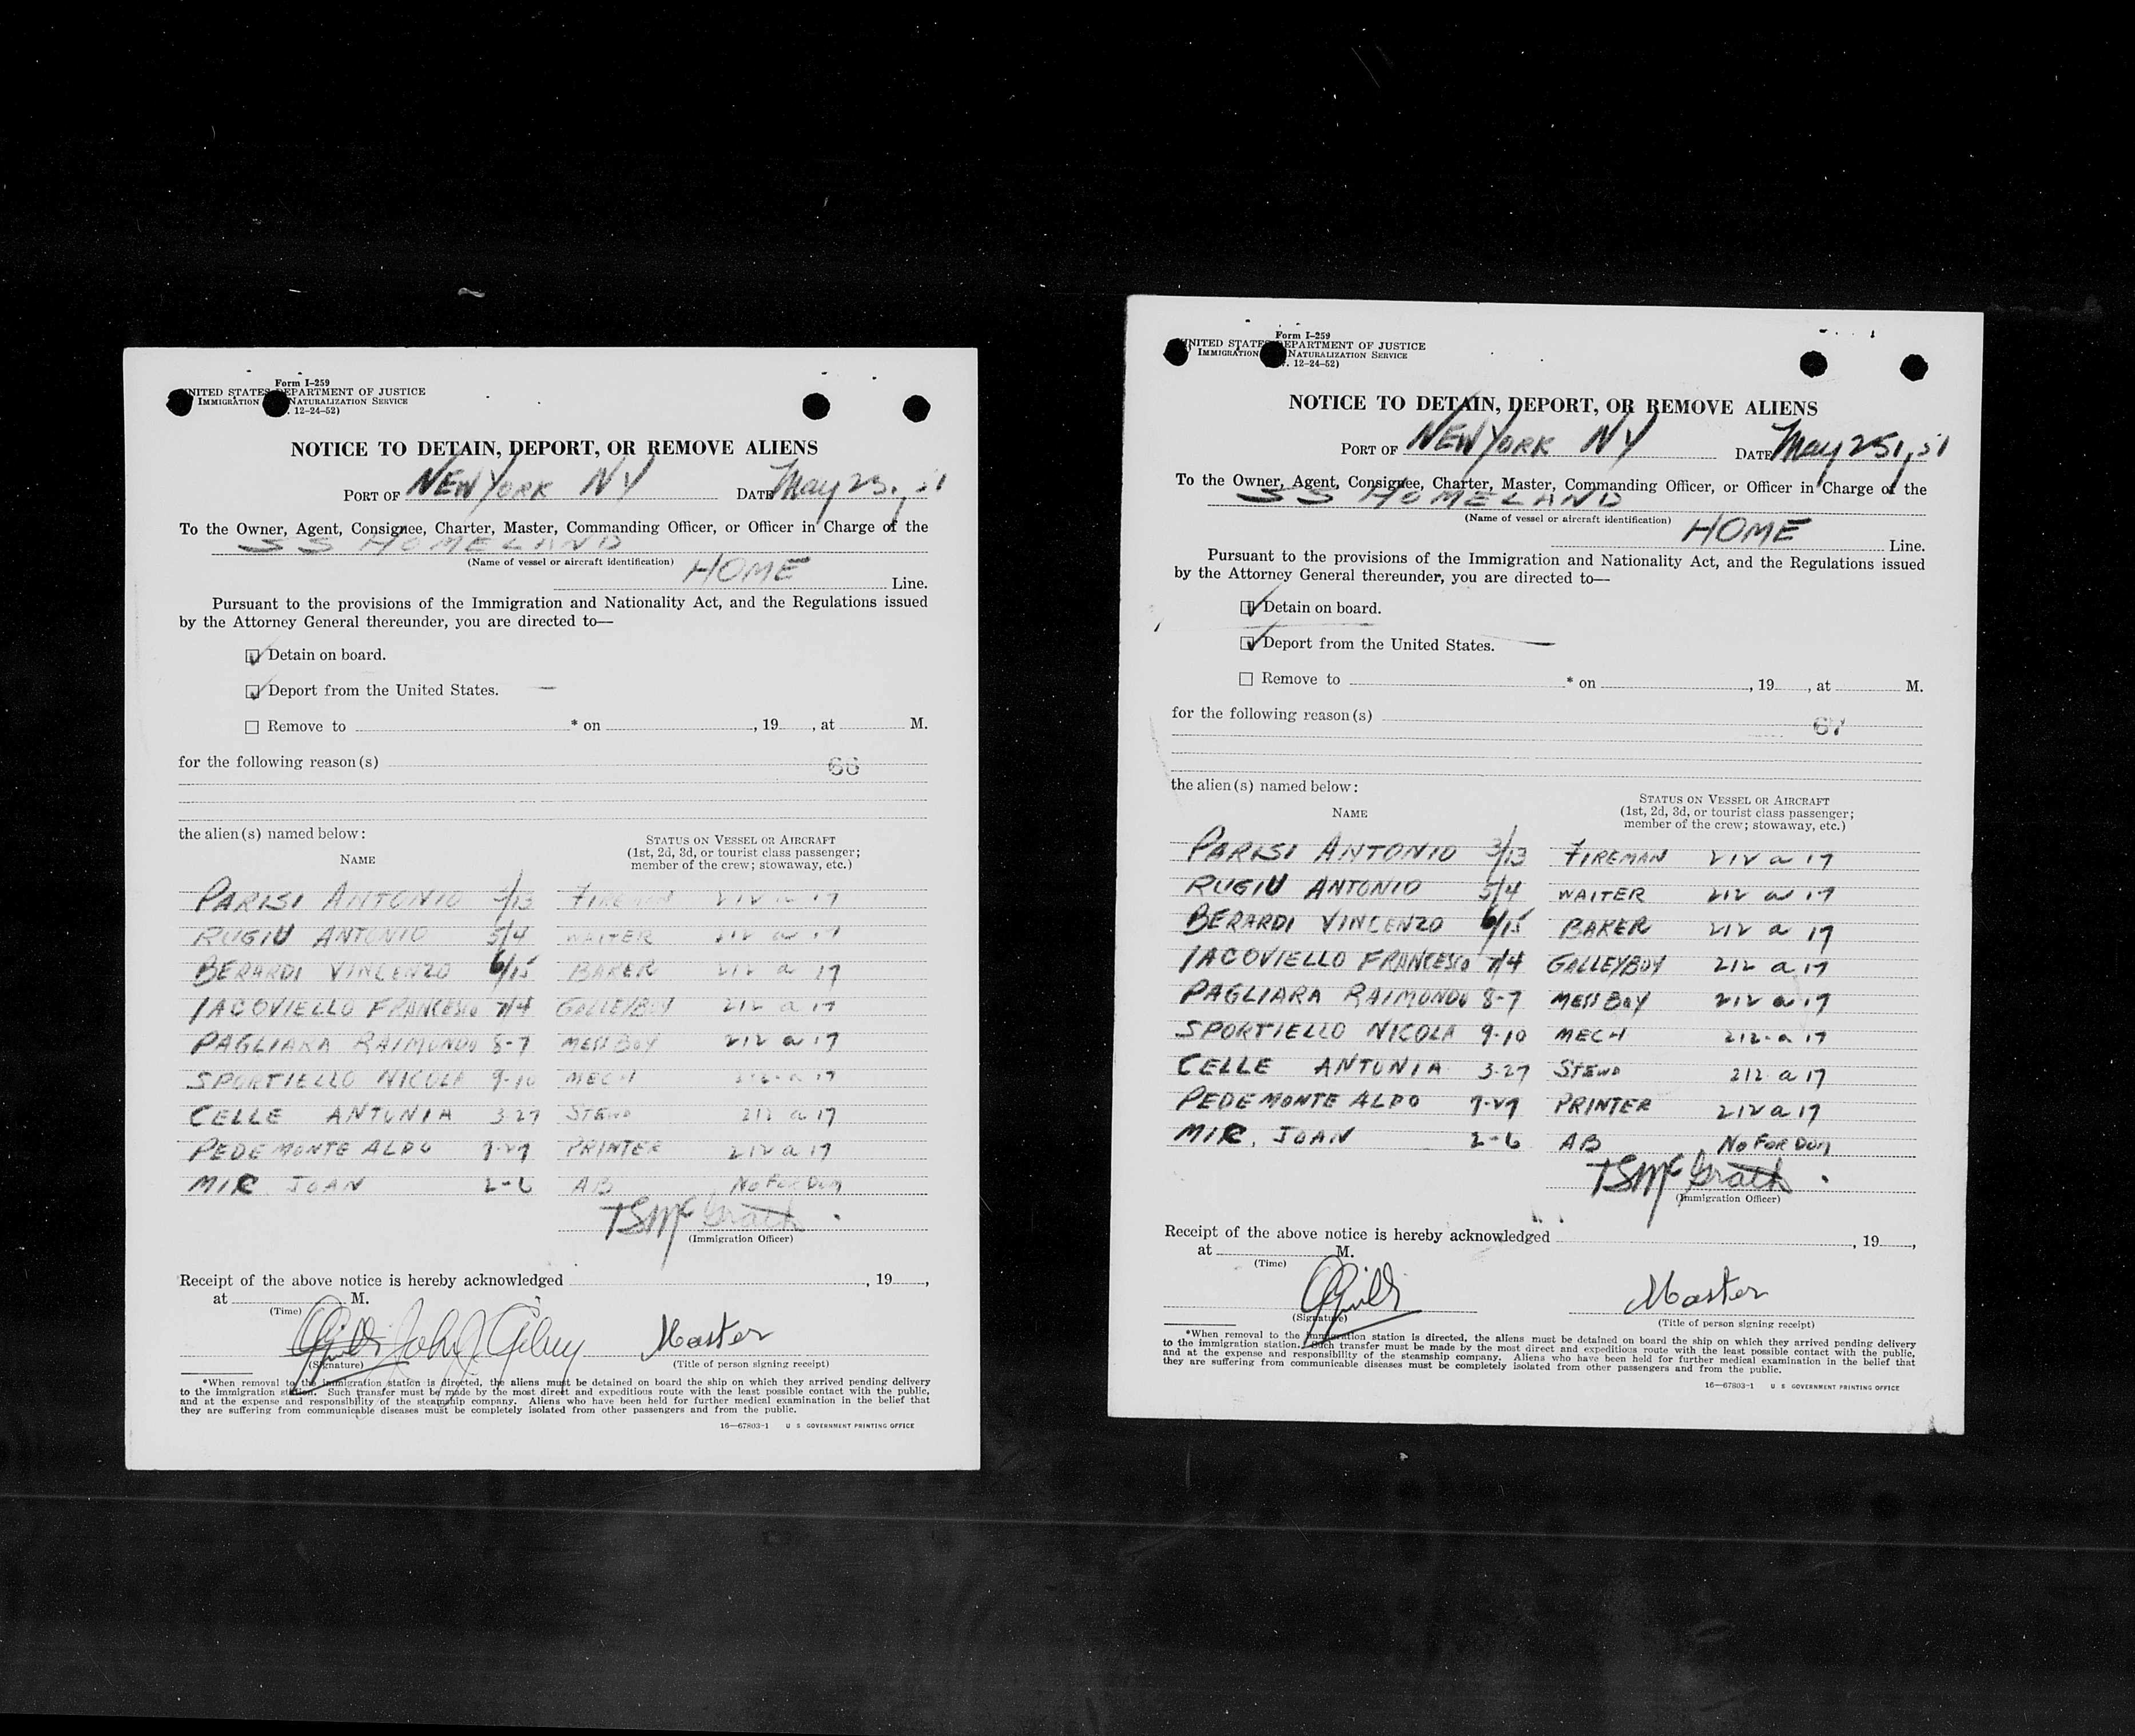 Form I-259
UNITED STATES DEPARTMENT OF JUSTICE
IMMIGRATION NATURALIZATION SERVICE
12-24-52)
NOTICE TO DETAIN, DEPORT, OR REMOVE ALIENS
PORT OF NEW YORK NY DATE May 25,
To the Owner, Agent, Consignee, Charter, Master, Commanding Officer, or Officer in Charge of the
SS HOMELAND
(Name of vessel or aircraft identification)
HOME Line.
Pursuant to the provisions of the Immigration and Nationality Act, and the Regulations issued
by the Attorney General thereunder, you are directed to—
Detain on board.
Deport from the United States. —
Remove to * on , 19 , at M.
for the following reason(s) 66
the alien(s) named below:
NAME
STATUS ON VESSEL OR AIRCRAFT
(1st, 2d, 3d, or tourist class passenger;
member of the crew; stowaway, etc.)
PARISI ANTONIO 3/13 FIREMAN 212 a 17
RUGIU ANTONIO 5/4 WAITER 212 a 17
BERARDI VINCENZO 6/15 BAKER 212 a 17
IACOVIELLO FRANCESCO 7/4 GALLEYBOY 212 a 17
PAGLIARA RAIMONDO 8-7 MESSBOY 212 a 17
SPORTIELLO NICOLA 9-10 MECH 212-a 17
CELLE ANTONIA 3-27 STEWD 212 a 17
PEDEMONTE ALDO PRINTER 212 a 17
MIR JOAN 2-6 AB No For Dom
TSMcGrath
(Immigration Officer)
Receipt of the above notice is hereby acknowledged , 19 ,
at M.
(Time)
John J. Master
(Signature) (Title of person signing receipt)
*When removal to the immigration station is directed, the aliens must be detained on board the ship on which they arrived pending delivery
to the immigration station. Such transfer must be made by the most direct and expeditious route with the least possible contact with the public,
and at the expense and responsibility of the steamship company. Aliens who have been held for further medical examination in the belief that
they are suffering from communicable diseases must be completely isolated from other passengers and from the public.
16—67803-1 U S GOVERNMENT PRINTING OFFICE
Form I-259
UNITED STATES DEPARTMENT OF JUSTICE
IMMIGRATION NATURALIZATION SERVICE
12-24-52)
NOTICE TO DETAIN, DEPORT, OR REMOVE ALIENS
PORT OF NEW YORK NY DATE May 25,
To the Owner, Agent, Consignee, Charter, Master, Commanding Officer, or Officer in Charge of the
SS HOMELAND
(Name of vessel or aircraft identification)
HOME Line.
Pursuant to the provisions of the Immigration and Nationality Act, and the Regulations issued
by the Attorney General thereunder, you are directed to—
Detain on board.
Deport from the United States. —
Remove to * on , 19 , at M.
for the following reason(s) 67
the alien(s) named below:
NAME
STATUS ON VESSEL OR AIRCRAFT
(1st, 2d, 3d, or tourist class passenger;
member of the crew; stowaway, etc.)
PARISI ANTONIO 3/13 FIREMAN 212 a 17
RUGIU ANTONIO 5/4 WAITER 212 a 17
BERARDI VINCENZO 6/15 BAKER 212 a 17
IACOVIELLO FRANCESCO 7/4 GALLEYBOY 212 a 17
PAGLIARA RAIMONDO 8-7 MESSBOY 212 a 17
SPORTIELLO NICOLA 9-10 MECH 212-a 17
CELLE ANTONIA 3-27 STEWD 212 a 17
PEDEMONTE ALDO PRINTER 212 a 17
MIR, JOAN 2-6 AB No For Dom
TSMcGrath
(Immigration Officer)
Receipt of the above notice is hereby acknowledged , 19 ,
at M.
(Time)
Master
(Signature) (Title of person signing receipt)
*When removal to the immigration station is directed, the aliens must be detained on board the ship on which they arrived pending delivery
to the immigration station. Such transfer must be made by the most direct and expeditious route with the least possible contact with the public,
and at the expense and responsibility of the steamship company. Aliens who have been held for further medical examination in the belief that
they are suffering from communicable diseases must be completely isolated from other passengers and from the public.
16—67803-1 U S GOVERNMENT PRINTING OFFICE